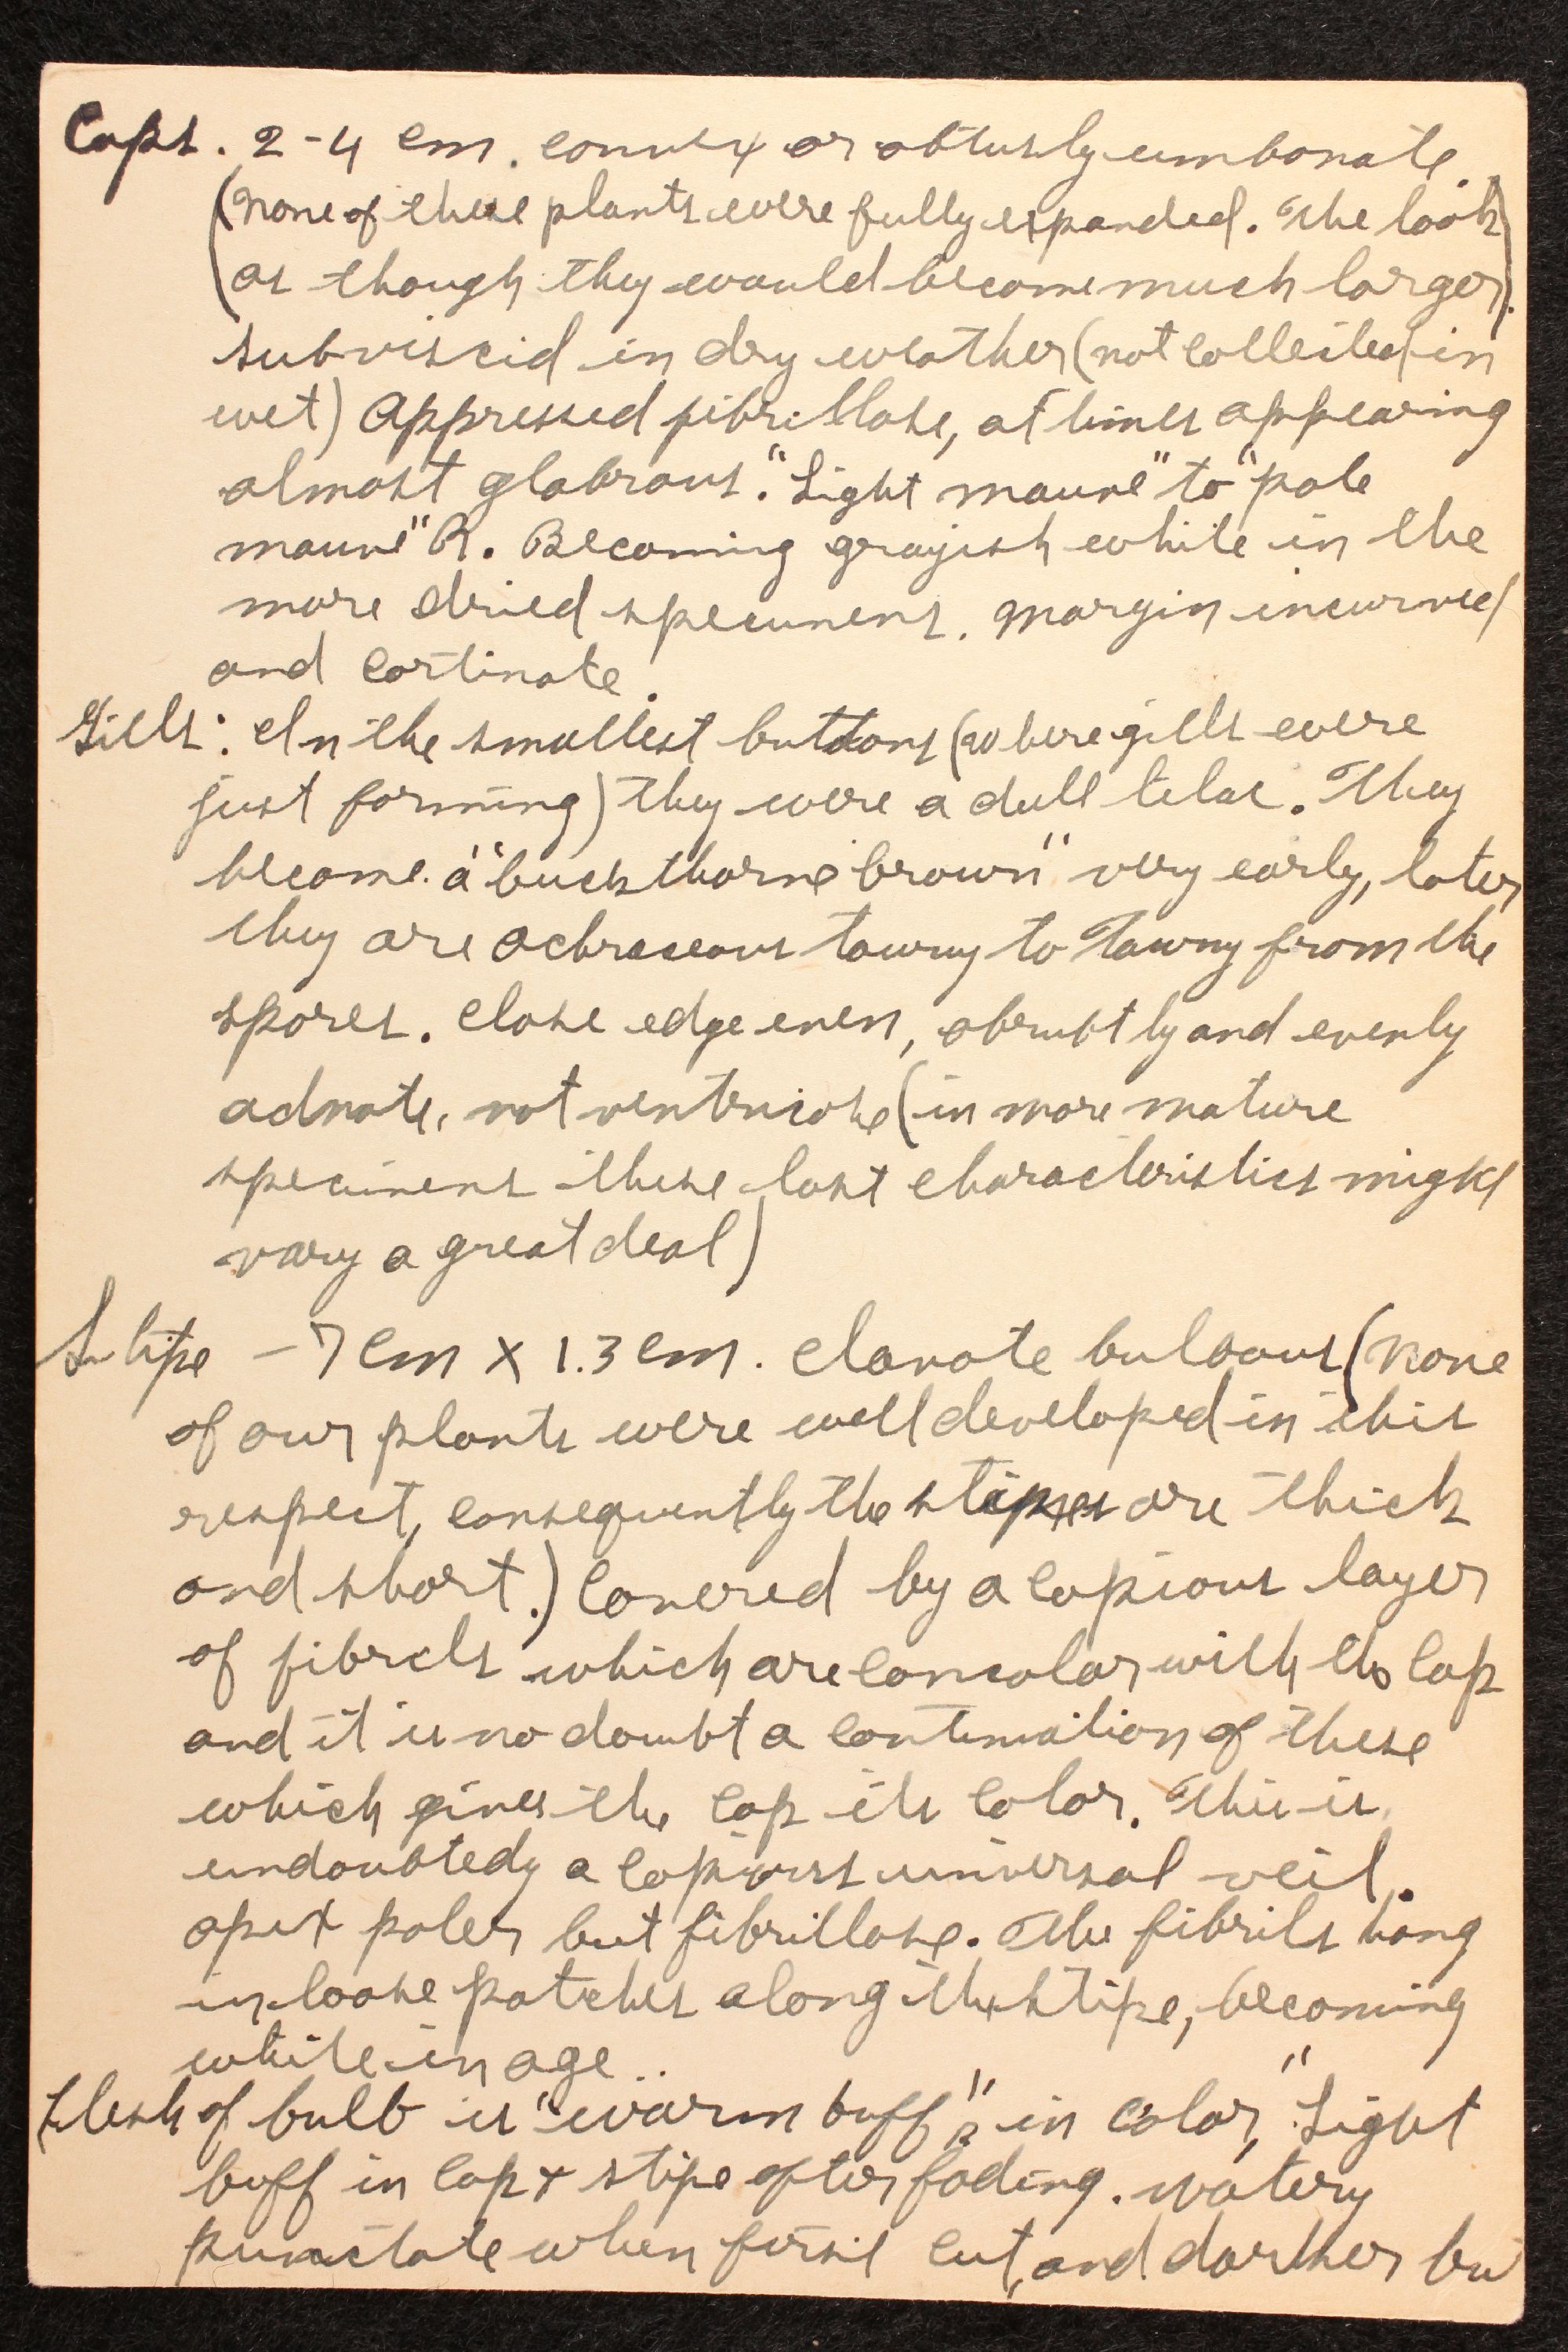 Caps. 2-4 cm. convex or obtusly umbonate.
(none of these plants were fully expanded. The look
as though they would become much larger).
subviscid in dry weather (not collected in
wet) Appressed fibrillose, at times appearing
almost glabrous. "Light mauve" to "pale
mauve" R. Becoming grayish white in the
more dried specimens. Margin incurved
and cortinate.
Gills: In the smallest buttons (where gills were
just forming) they were a dull lilac. They
become a "buckthorne brown" very early, later
they are ochraceous tawny to Tawny from the
spores. Close edge even, abrubtly and evenly
adnate, not ventricose (in more mature
specimens these last characteristics might
vary a great deal)
Stipe - 7 cm X 1.3 cm. Clavate bulbous (none
of our plants were well developed in this
respect, consequently the stipes are thick
and short.) Covered by a copious layer
of fibrels which are concolor with the cap
and it is no doubt a continuation of these
which gives the cap its color. This is
undoubtedy a copious universal veil.
apex paler but fibrillose. The fibrils hang
in loose patches along the stipe, becoming
white in age.
Flesh of bulb is "warm buff" R in color, "Light
buff" in cap & stipe after fading. Watery
punctate when first cut, and darker bu